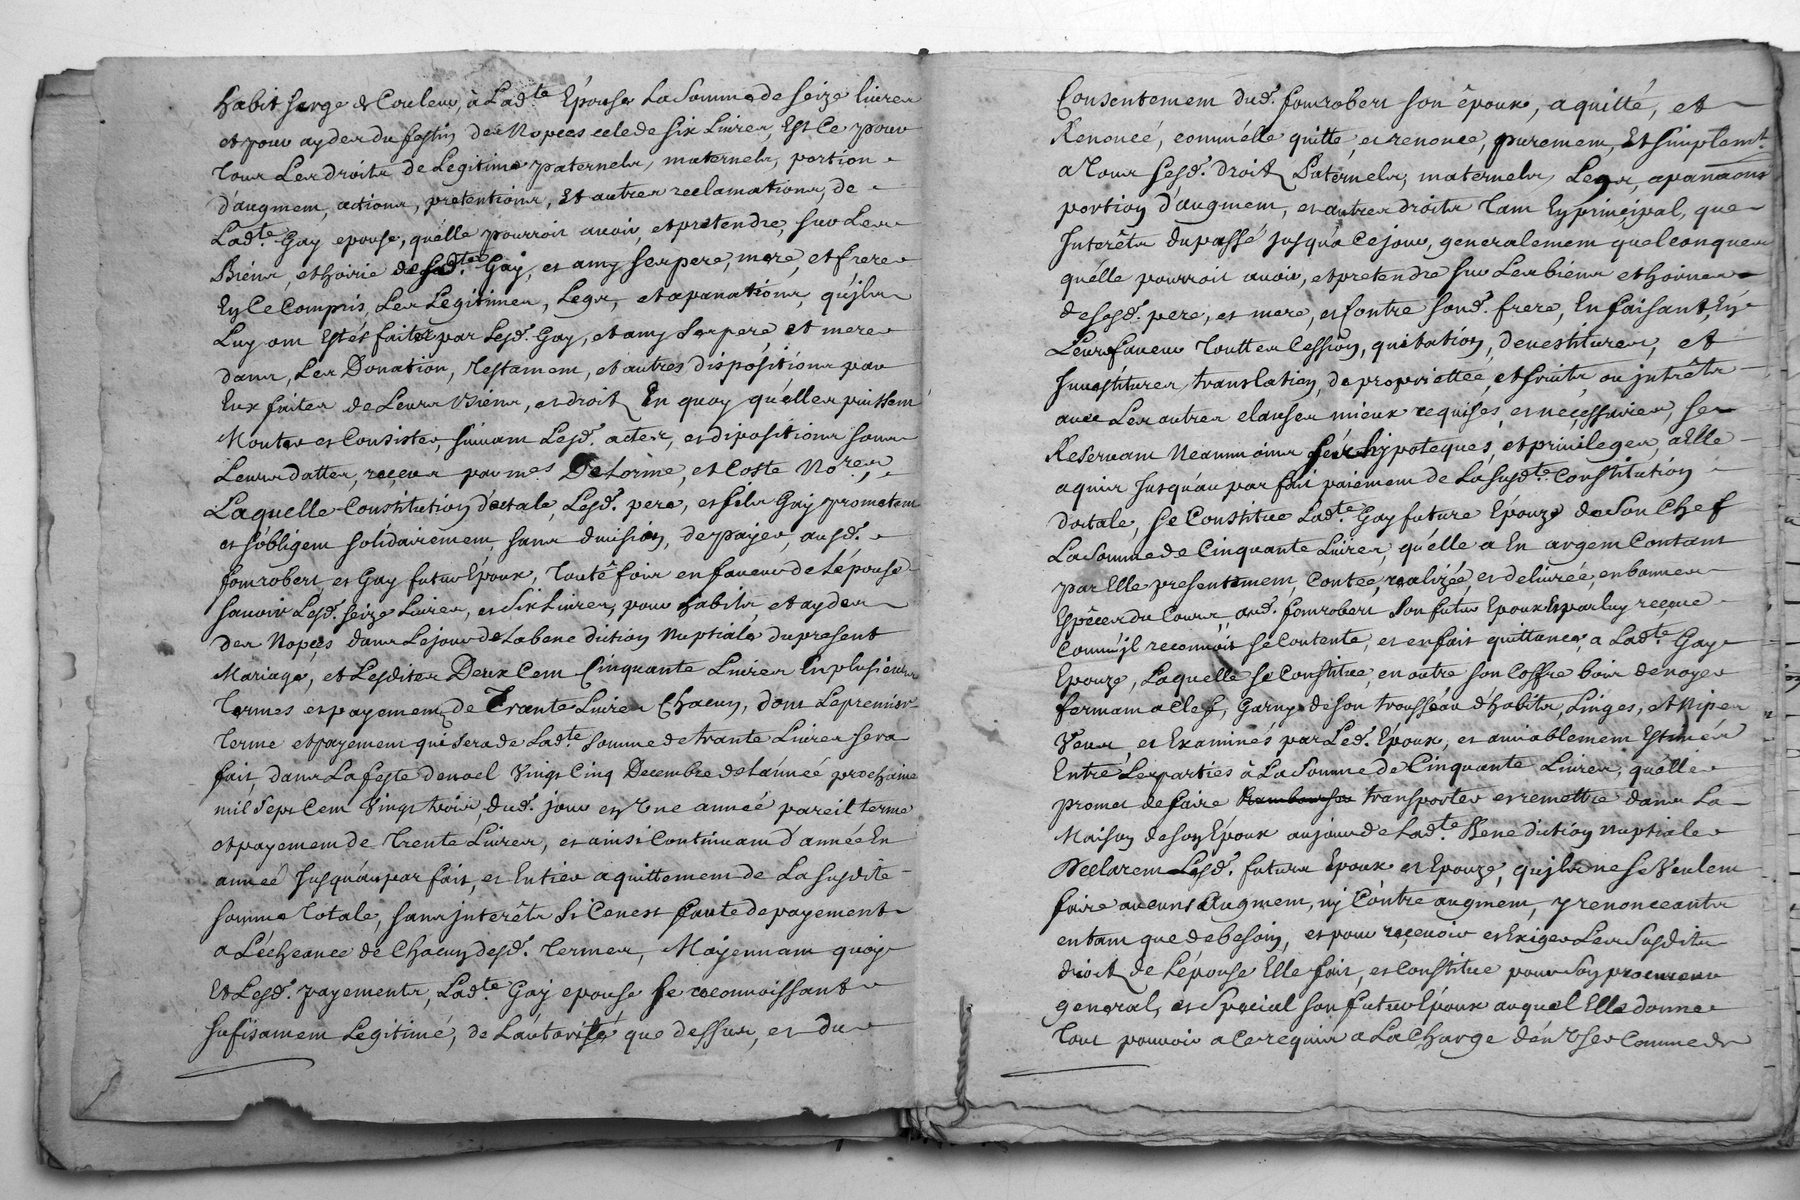 habit serge de Couleur, à Ladte Épouse La Somme de seize livres
et pour ayder du festin des Nopces cele de six Livres, Est Ce pour
Tous Les droits de Legitime paternels, maternels, portion
d'augment, actions, pretentions, Et autres reclamations, de
Ladte Gay epouse, quélle pourroit avoir, et pretendre, sur Les
Biéns, et hoirie de Sadte Gay, et amy ses pere, mere, et frere
En Ce Compris, Les Legitimes, Legs, et apanations, qu'jls
Luy ont Estés faites par Lesd. Gay, et amy Ses pere, et mere
dans, Les Donation, Testament, et autres dispositions par
Eux faites de Leurs Biéns, et droits En quoy qu'élles puissent
Monter et Consister, suivant Lesd. actes, et dipositions sous
Leurs dattes, reçeues par mes Delorme, et Coste Nores,
Laquelle Constitution dotale, Lesd. pere, et fils Gay prometent
et s'obligent solidairement, sans division, de payer, ausd.
Jomrobert, et Gay futur Époux, Toutêfois en faveur de L'épouse
savoir Lesd. seize Livres, et Six Livres, pour habits, et ayder
des Nopces dans Le jour de La bene diction Nuptiale du present
Mariage, et Lesdites Deux Cent Cinquante Livres En plusieurs
Termes et payement de Trante Livres Chacun, dont Le premier
Terme et payement qui sera de Ladte somme de trante Livres sera
fait, dans La feste de noel Vingt Cinq Decembre de L'année prochaine
mil Sept Cent Vingt trois, dud. jour en Une année pareil terme
et payement de Trente Livres, et ainsi Continuant d'année En
année Jusqu'au par fait, et Entier aquittement de La susdite
somme Totale, sans jnterêts Si Cenest faute de payement
a L'écheance de Chacun desd. Termes, Moyennant quoy
Et Lesd. payements, Ladte Gay epouse se reconnoissant
sufisament Legitimé, de L'autorité que dessus, et du
Consentement dud. Jomrobert son époux, a quitté, et
Renoncé, comm'elle quitte, et renonce, purement, Et simplemt.
a Tous sesd. droits Paternels, maternels Legs, apanaons
portion d'augment, et autres droits Tant En principal, que
Interêts du passé jusqu'a Ce jour, generalement quelconques
qu'elle pourroit avoir, et pretendre sur Les biéns et hoiries
de sesd. pere, et mere, et Contre sond. frere, En faisant, En
Leur faveur Touttes Cession, quitation, devestitures, et
Jnvestitures translation, de propriettée et fruits ou jntrêts
avec Les autres clauses mieux requises, et neçessaires, se
Reservant Neanmoins ses hypoteques, et privileges, a Elle
aquis Jusqu'au par fait paiement de La susdte Constitution
dotale, Se Constitue Ladte Gay future Épouze de Son Chef
La Somme de Cinquante Livres, qu'elle a En argent Contant
par Elle presentement, Contée, realizée et delivrée, en bonnes
Espéces du Cours, aud. Jomrobert Son futur Epoux Et par luy receue
Comm'jl reconnoit se Contente, et en fait quittance, a Ladte Gay
Epouze, Laquelle se Constitue, en outre son Coffre bois de noyer
fermant a Clef, Garny de son trousseau d'habits, Linges, et Nipes
Veus et Examinés par Led. Époux, et amiablement Estimés
Entre Les parties à La Somme de Cinquante Livres, qu'elle
promet de faire transporter et remettre dans La
Maison de son Epoux au jour de Ladte Bene diction Nuptiale
Declarent Lesd. futurs Epoux et Epouze, qu'jls ne se Veulent
faire aucuns Augment, ny Contre augment, y renonceants
en tant que de besoin, et pour reçevoir et Exiger Les Susdits
droits de L'épouse Elle fait, et Constitue pour Son procureur
general, et Special son futur Epoux auquel Elle donne
Tout pouvoir a Ce requis a La Charge d'én User Comme de